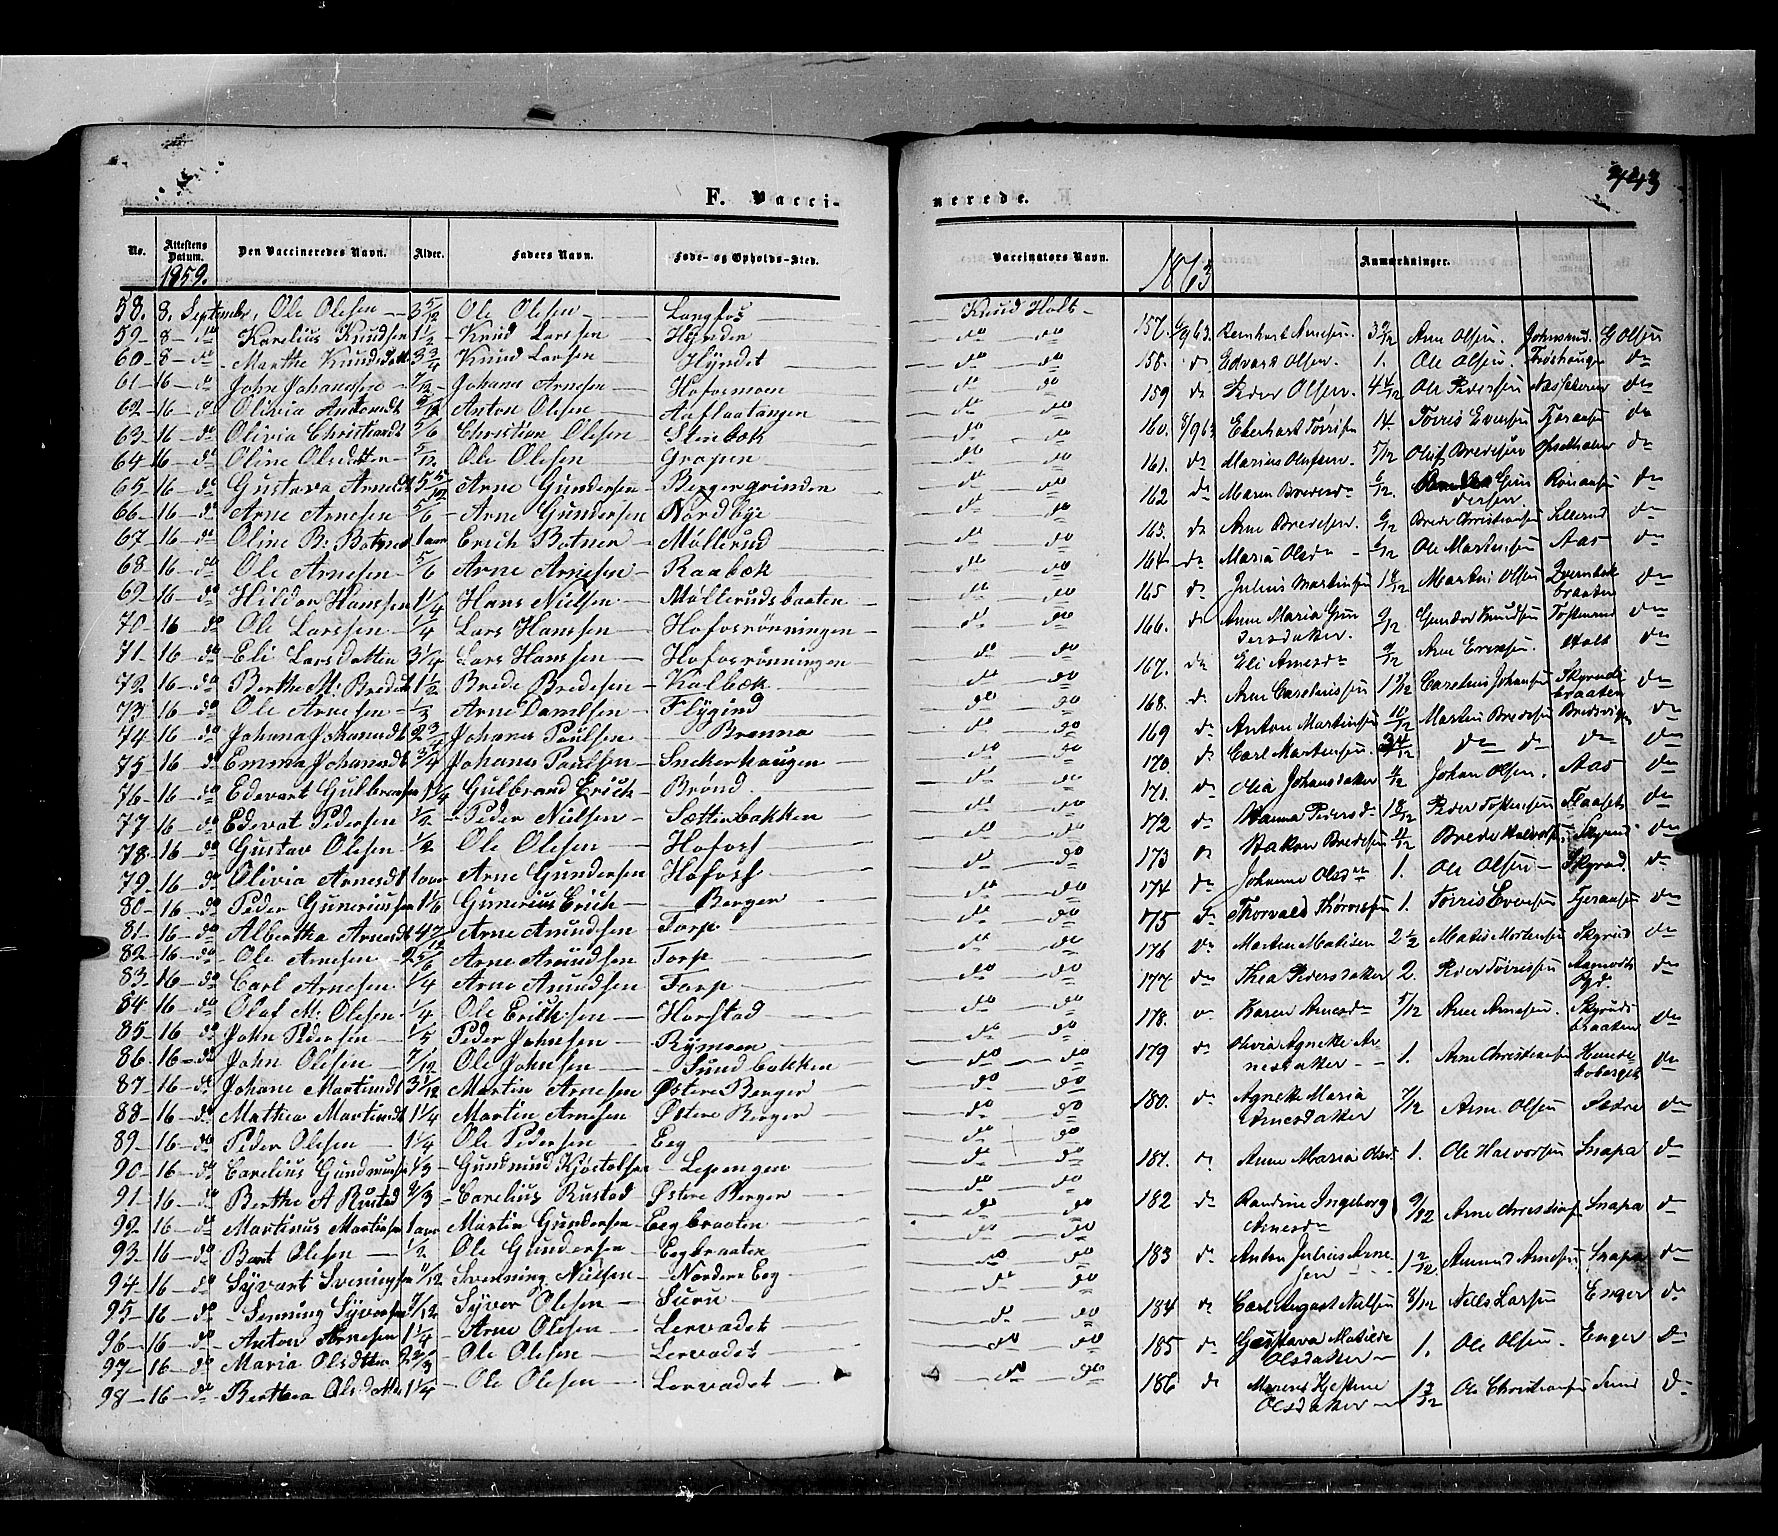 443
F. Vacci-
No. Attestens Datum. Den Vaccineredes Navn. Alder. Faders Navn. Føde- og Opholds-Sted.
1859.
58. 8. September. Ole Olesen 3 5/12 Ole Olesen Langfos
59 8 do Karelius Knudsen 1 1/2 Knud Larssen
60 8 do Marthe Knudsdatt 3 3/4 Knud Larsen
61 16 do John Johannesen Johanes Arnesen Hofosmoen
62 16 do Olivia Antonsdt Anton Olesen Aaslaatangen
63 16 do Olivia Christiansdt 5/6 Christian Olesen Stenbæk
64 16 do Oline Olsdatten 5/12 Ole Olesen Grapen
65 16 do Gustava Arnesdt 5 5/12 Arne Gundersen Bergergrinden
66 16 do Arne Arnesen 5/6 Arne Gundersen Nordbye
67 16 do Oline B. Botner 1 aar Erich Botner Møllerud
68 16 do Ole Arnesen 5/6 Arne Arnesen Raabæk
69 16 do Hildor Hanssen 1 1/4 Hans Nielsen Møllerudsbraaten
70 16 do Ole Larssen 1/4 Lars Hanssen Hofosrønningen
71 16 do Eli Larsdatten 3 1/4 Lars Hanssen Hofosrønningen
72 16 do Berthe M. Bredesdt 1 1/2 Brede Bredesen Kalbæk
73 16 do Ole Arnesen 1/3 Arne Danielsen Flygind
74 16 do Johana Johanesdt 2 3/4 Johanes Paulsen Brenna
75 16 do Emma Johanesdt 3/4 Johanes Paulsen Snekerhaugen
76 16 do Edevart Gulbransen 1 1/4 Gulbrand Erich Brønd
77 16 do Edevat Pedersen 1/2 Peder Nielsen Sætterbakken
78 16 do Gustav Olesen 1/2 Ole Olesen Hofosf
79 16 do Olivia Arnesdt 1 aar Arne Gundersen Hofosf
80 16 do Peder Gunneriussen 1 1/6 Gunerius Erich Berger
81 16 do Albertha Arnesdt 4 7/12 Arne Amundsen Torp
82 16 do Ole Arnesen 2 5/6 Arne Amundsen Torp
83 16 do Carl Arnesen 1/4 Arne Amundsen Torp
84 16 do Olaf M. Olesen 1/4 Ole Erichsen Horstad
85 16 do John Pedersen 1/5 Peder Johnsen Rymoen
86 16 do John Olesen 7/12 Ole Johnsen Sundbakken
87 16 do Johane Martinsdt 3 1/12 Martin Arnesen Østere Berger
88 16 do Mathea Martinsdt 1 1/4 Martin Arnesen Østere Berger
89 16 do Peder Olesen 1 1/4 Ole Pedersen Eeg
90 16 do Carelius Gundmunsen 1/3 Gundmund Kjøstolsen Lepengen
91 16 do Berthe A Rustad Carelius Rustad Østere Berger
92 16 do Martinus Martinsen 1 aar Martin Gundersen Eegbraaten
93 16 do Bart Olesen 1/2 Ole Gundersen Eegbraaten
94 16 do Syvart Sveningsen 11/12 Svenning Nielsen Nordere Eeg
95 16 do Senning Syversen 7/12 Syver Olesen Suru
96 16 do Anton Arnesen 1 1/4 Arne Olesen Lervadet
97 16 do Maria Olsdtten 2 2/3 Ole Olesen Lervadet
98 16 do Berthea Olsdatter 1 1/4 Ole Olesen Lervadet
nerede.
Vaccinators Navn. Anmærkninger.
1863
Knud Holt
do do
157. 6/9 63. Reinhart Arnesen. 3 9/12 Arne Olsen. Johnsrud G Olsen
158. do Edvard Olsen. 1. Ole Olsen. Frøshaugen do
159 do Peder Olsen. 4 4/12 Ole Pedersen do
160. 8/9 63 Ekerhart Torrisen 14 Torris Evensen Tjeransen do
161. do Marius Olufsen. 5/12 Oluf Bredesen Opsethalen do
162 do Maren Bredesdr 6/12. Gundersen do
163. do Arne Bredesen. 6/12 Brede Christiansen Sellerud do
164 do Maria Olsdr 6/12 Ole Martinsen Aas do
165 do Julius Martinsen 1 8/12 Martin Olsen Kvernbekbraaten do
166. do Anne Maria Gundersdatter. 9/12 Gunder Knudsen Tostenrud do
167. do Eli Arnesdr 9/12 Arne Eriksen. Holt do
168. do Arne Careliussen Carelius Johansen Skyrudsbraaten do
169 do Anton Martinsen 10/12 Martin Bredesen Bredevigen do
170. do Carl Martinsen do do do do
171. do Olia Johansdatter 5/12 Johan Olsen. Aas do
172 do Hanna Pedersdr 1 8/12 Peder Tostensen Flaaset do
173 do Hakon Bredesen 4/12 Brede Halvorsen Skyrud do
174 do Johanne Olsdr 1. Ole Olsen Skyrud. do
175 do Thorvald Thorresen 1. Torris Evensen Tjeransen do
176 do Marten Matisen 2 1/2 Matis Mortensen Skyrud do
177 do Thea Pedersdatter 2. Peder Torresen do
178. do Karen Arnesdr 5/12 Arne Arnesen. Skyrudsbraaten do
179 do Olivia Agnethe Arnesdatter 1. Arne Christiansen do
180. do Agnethe Maria Arnesdatter 7/12 Arne Olsen do
181. do Anne Maria Olsdr 1. Ole Halvorsen Snapa do
182 do Randine Ingeborg Arnesdr 9/12 Snapa do
183 do Anton Julius Arnesen 1 2/12. Amund Arnesen Snapa do
184 do Carl August Nielsen 8/12 Niels Larsen Enger do
185 do Gustava Matilde Olsdatter 1. Ole Olsen. Enger do
186 do Maren Kjestine Olsdatter 1 3/12 Ole Christiansen do